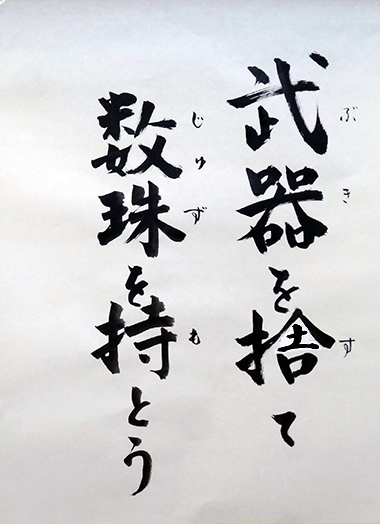 武器を捨て
ぶき す
数珠を持とう
じゅず も